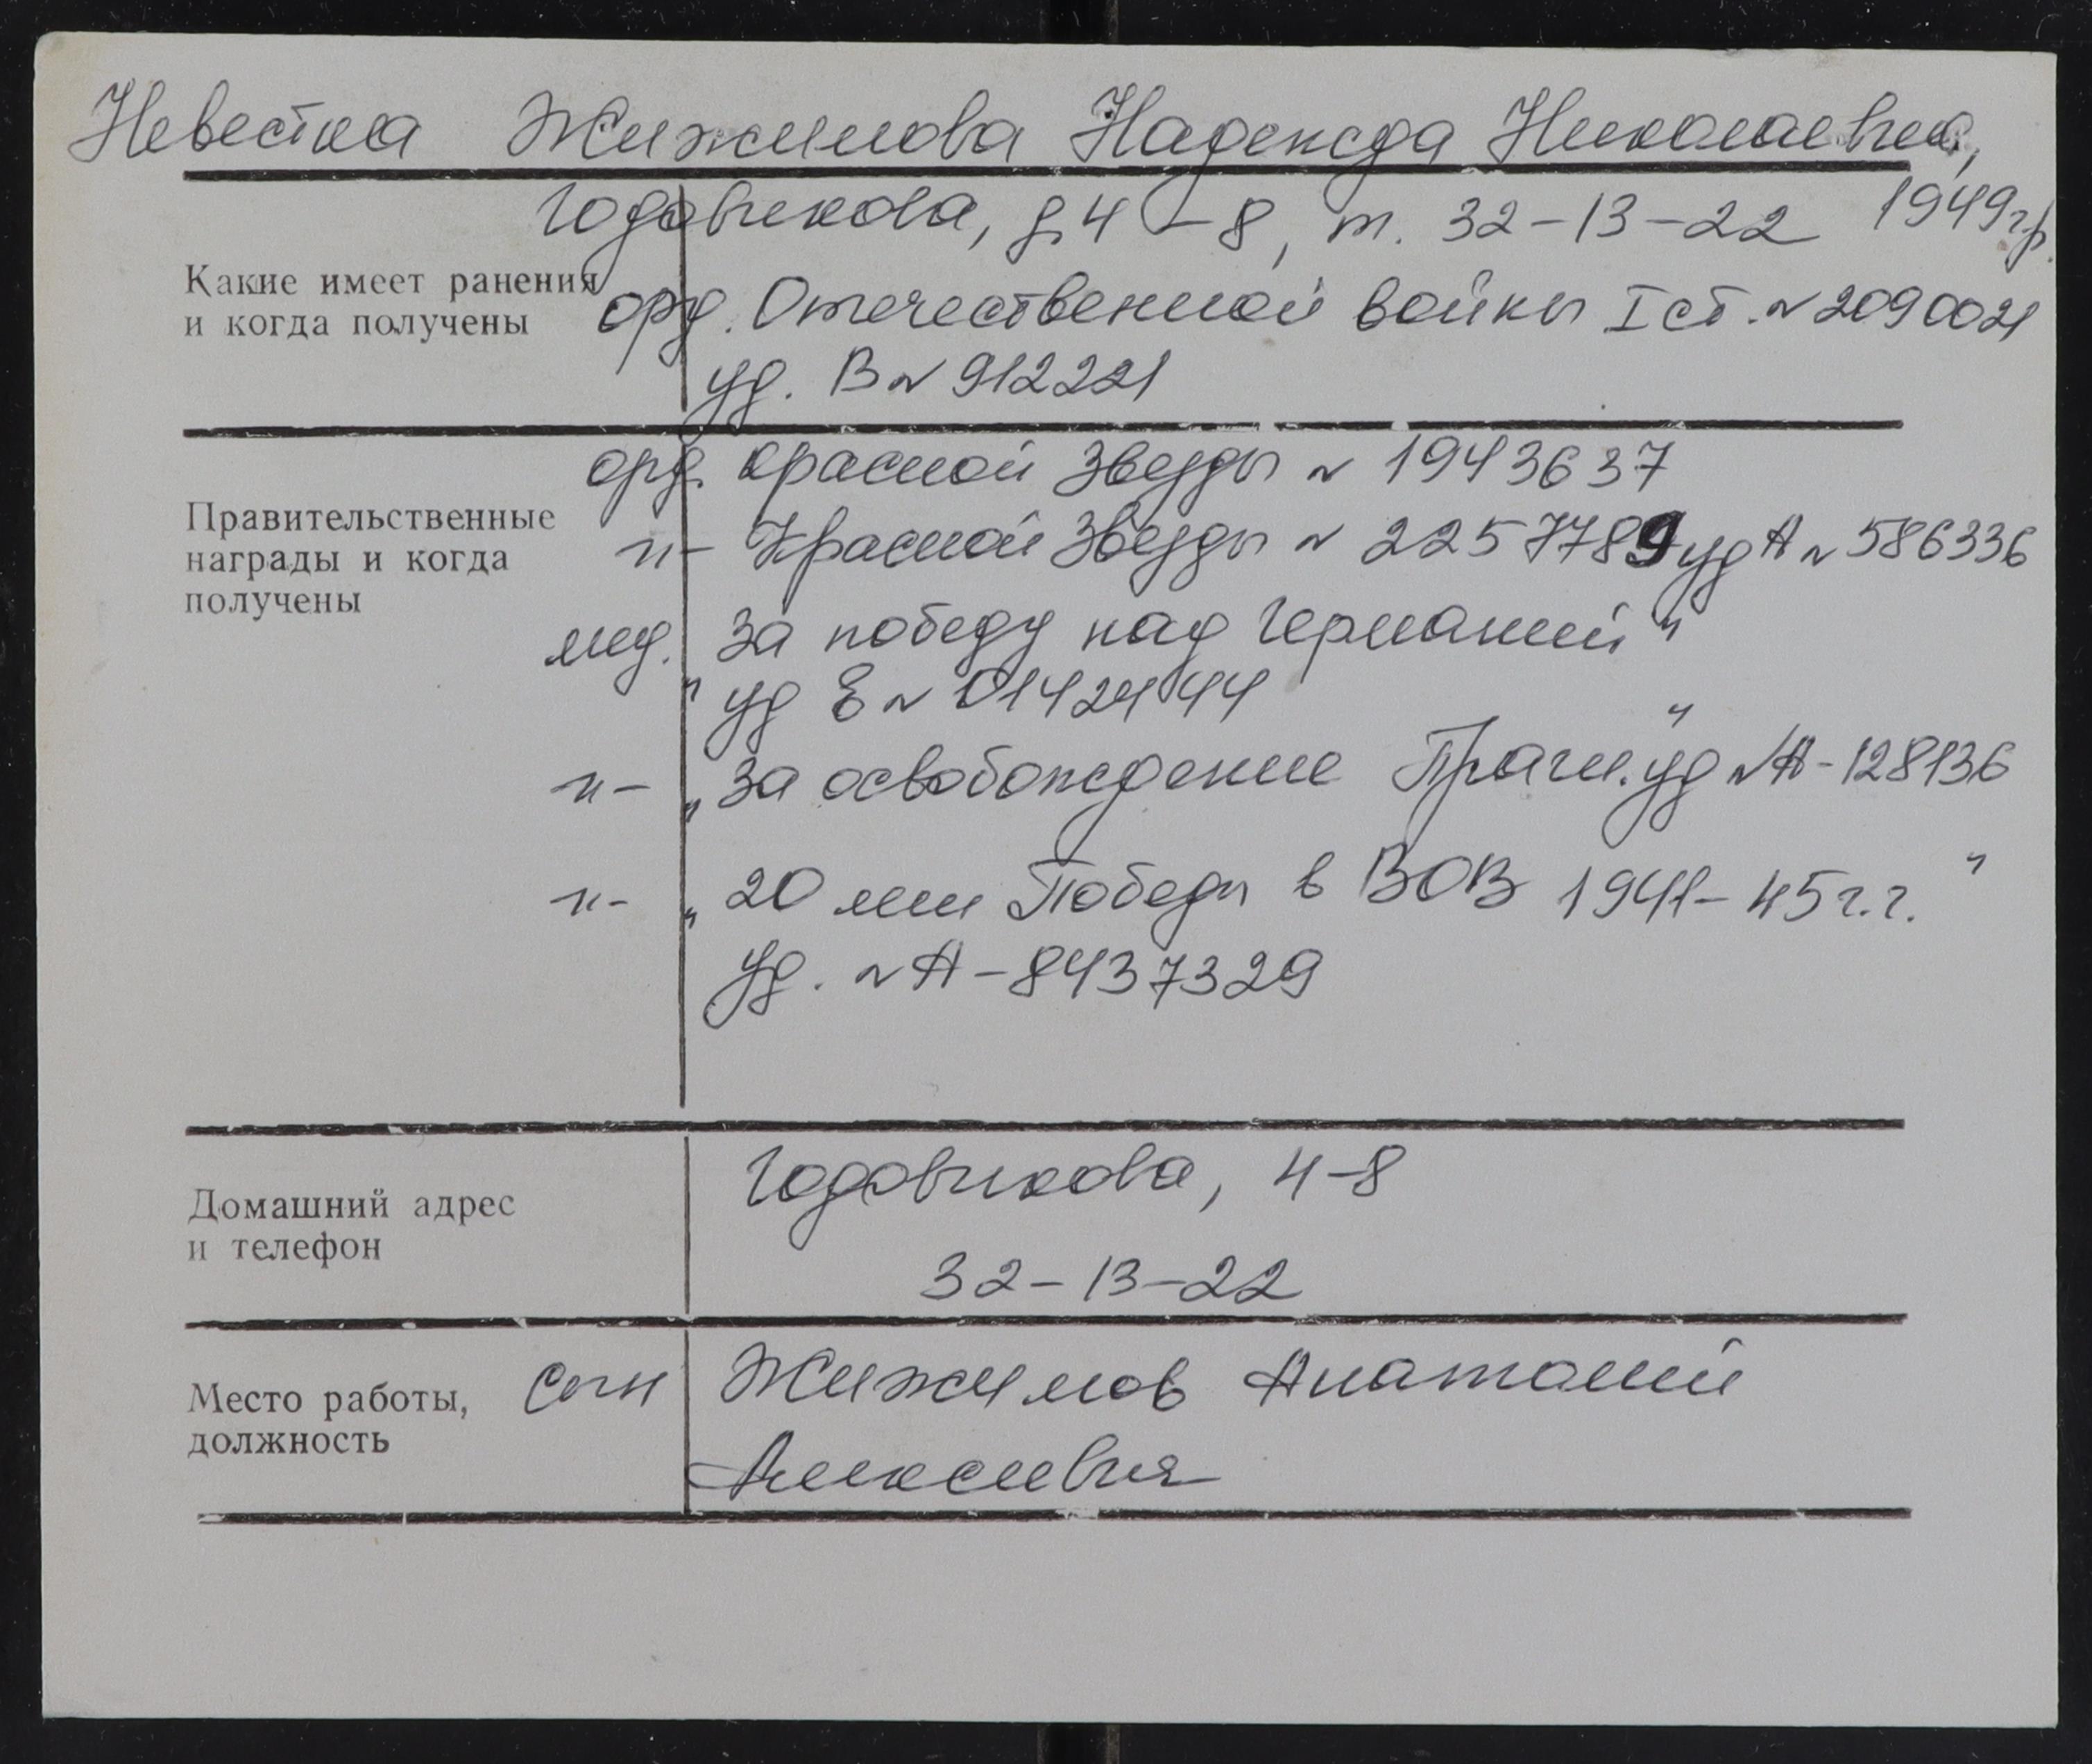 Невестка Жижимова Надежда Николаевна,
Годовикова, д 4 – 8, т. 32-13-22 1949 гр.
Какие имеет ранения
и когда получены
орд. Отечественной войны I ст. № 2090021
уд. В № 912221
орд. Красной Звезды № 1943637
Правительственные
награды и когда
получены
-"- Красной Звезды № 2257789 уд А № 586336
мед. "За победу над Германией"
уд Е №
-"- "За освобождение Праги." уд № А-128136
-"- "20 лет Победы в ВОВ 1941-45 г.г."
уд. № А-8437329
Домашний адрес
и телефон
Годовикова, 4-8
32-13-22
Место работы,
должность
сын Жижимов Анатолий
Алексеевич